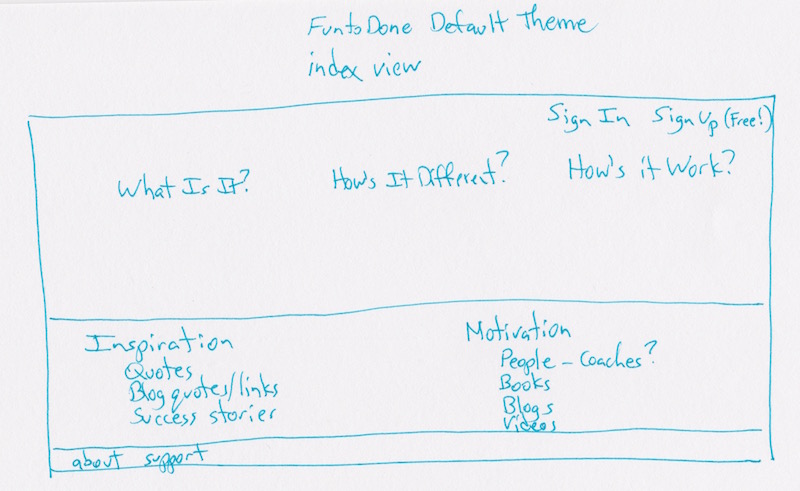 FuntoDone Default Theme
index view
Sign In Sign Up (Free!)
What Is It? How's It Different? How's it Work?
Inspiration
Quotes
Blog quotes/links
Success stories
Motivation
People - Coaches?
Books
Blogs
Videos
about support